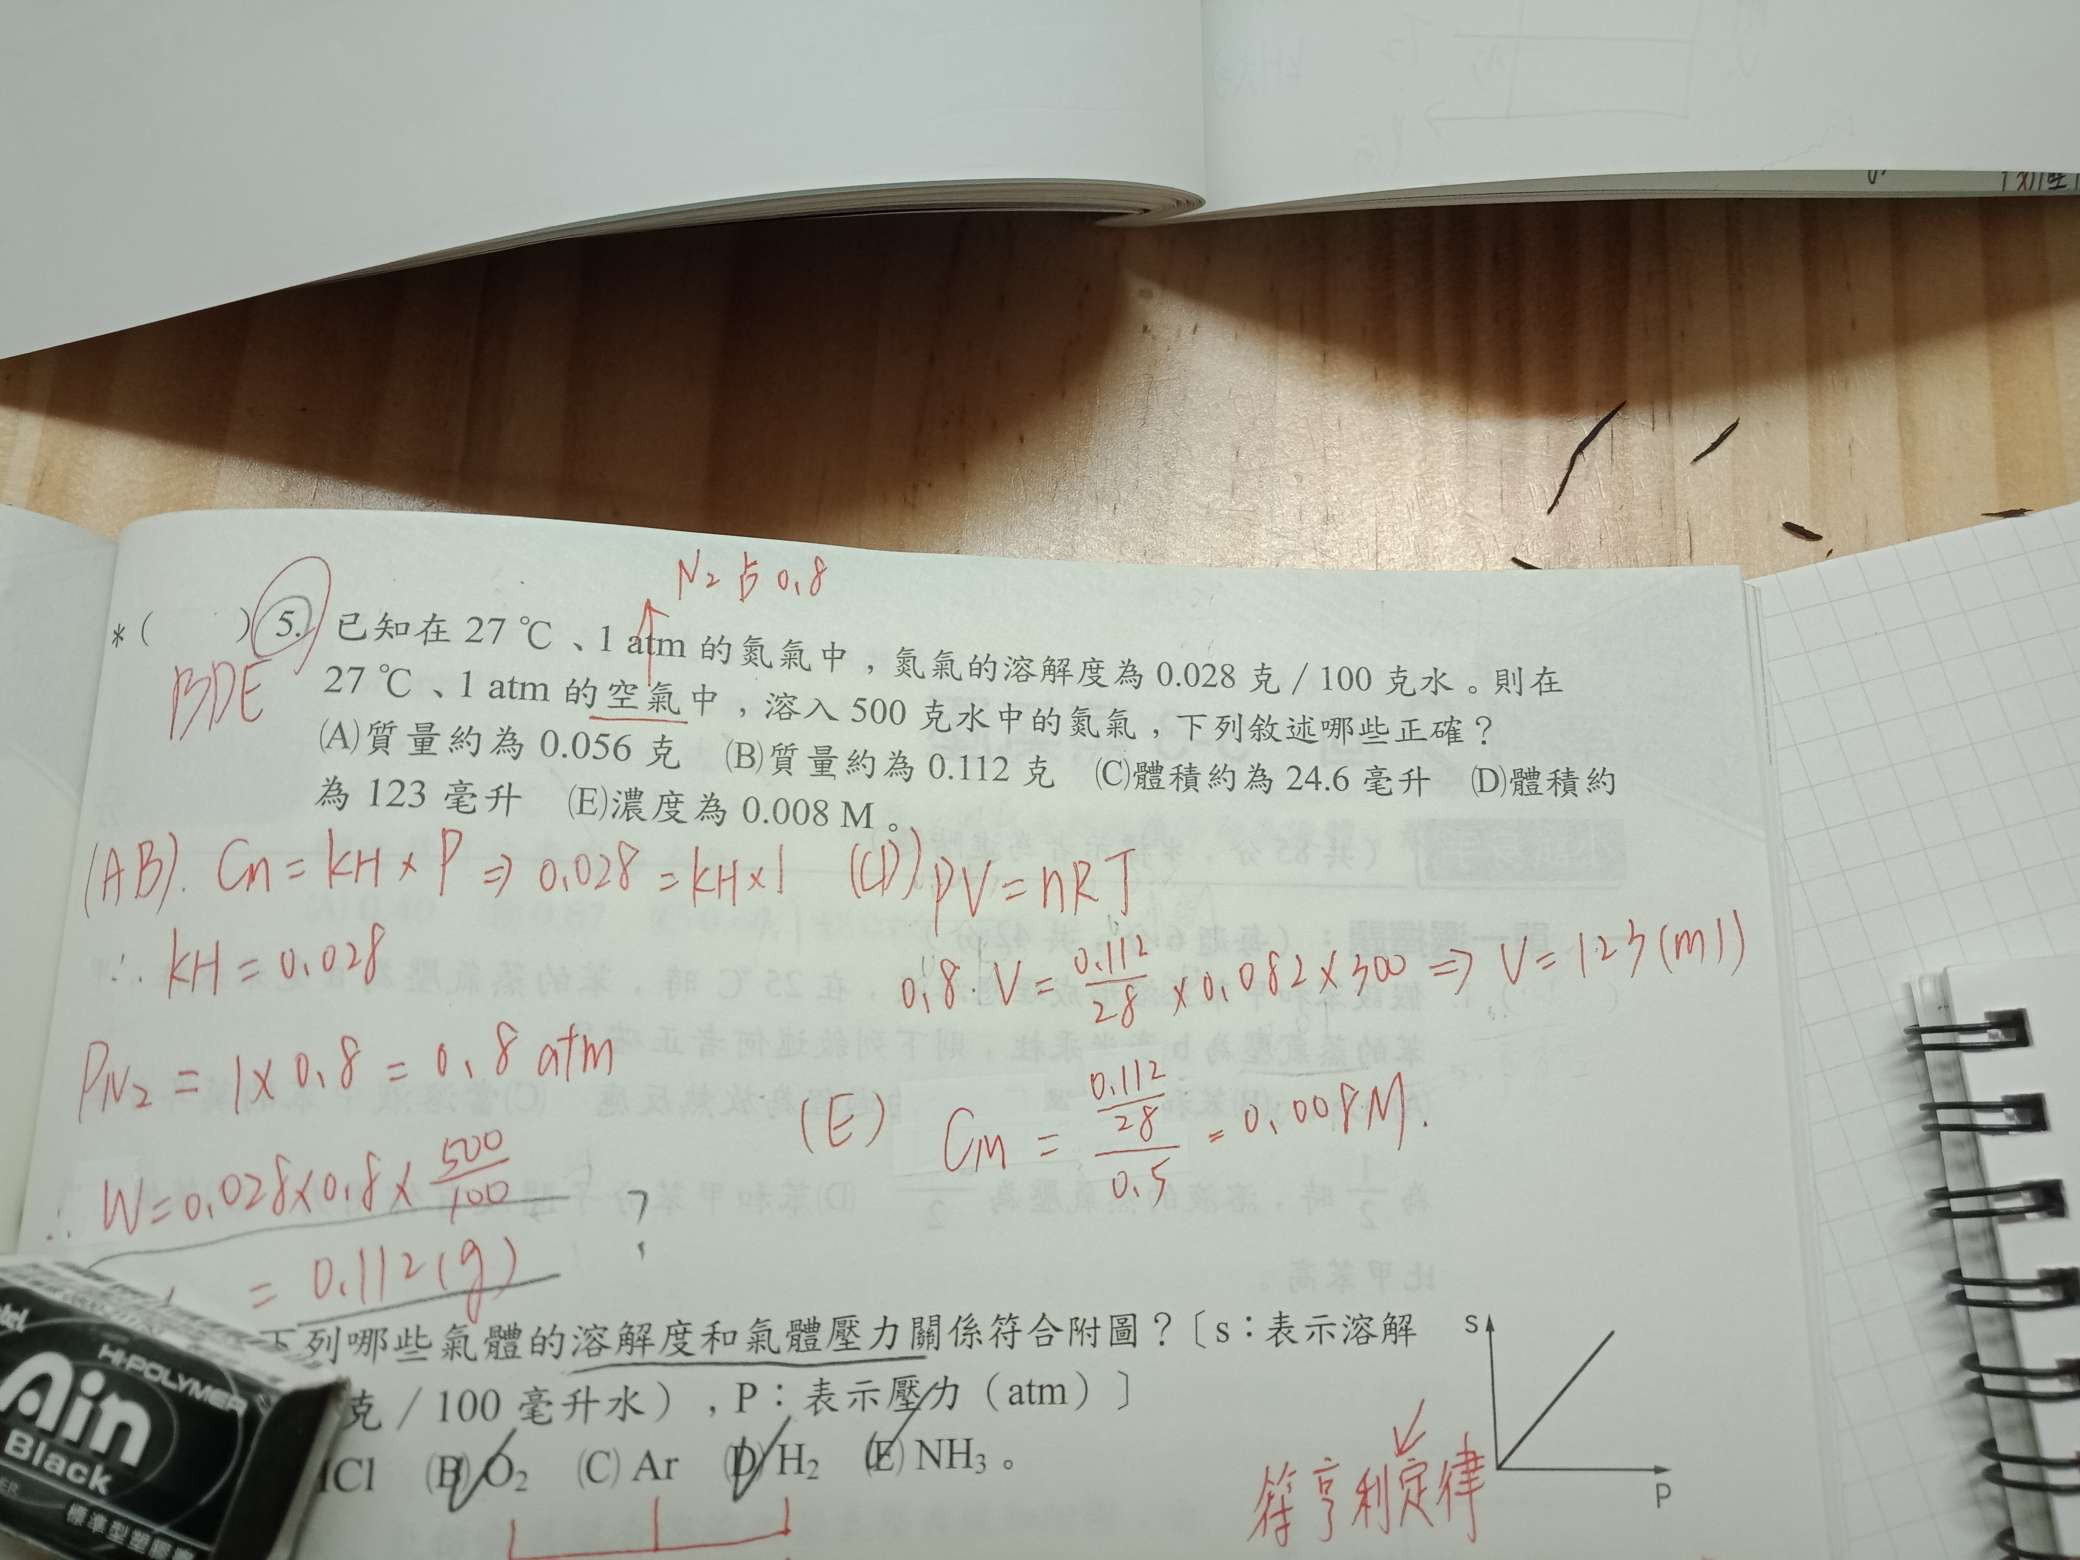 N₂ 占 0.8
*( ) 5. 已知在 27 ℃、1 atm 的氮氣中，氮氣的溶解度為 0.028 克 / 100 克水。則在
27 ℃、1 atm 的空氣中，溶入 500 克水中的氮氣，下列敘述哪些正確？
BDE
(A)質量約為 0.056 克 (B)質量約為 0.112 克 (C)體積約為 24.6 毫升 (D)體積約
為 123 毫升 (E)濃度為 0.008 M。
(AB). Cm = kH × P ⇒ 0.028 = kH × 1
∴ kH = 0.028
PN₂ = 1 × 0.8 = 0.8 atm
∴ W = 0.028 × 0.8 × 500/100
= 0.112 (g)
?
(CD) PV = nRT
0.8 · V = 0.112/28 × 0.082 × 300 ⇒ V = 123 (ml)
(E) Cm = (0.112/28)/0.5 = 0.008 M.
下列哪些氣體的溶解度和氣體壓力關係符合附圖？〔s：表示溶解
克 / 100 毫升水），P：表示壓力（atm）〕
HCl (B) O₂ (C) Ar (D) H₂ (E) NH₃。
s
P
符亨利定律
Ain
Black
HI-POLYMER
標準型塑膠擦